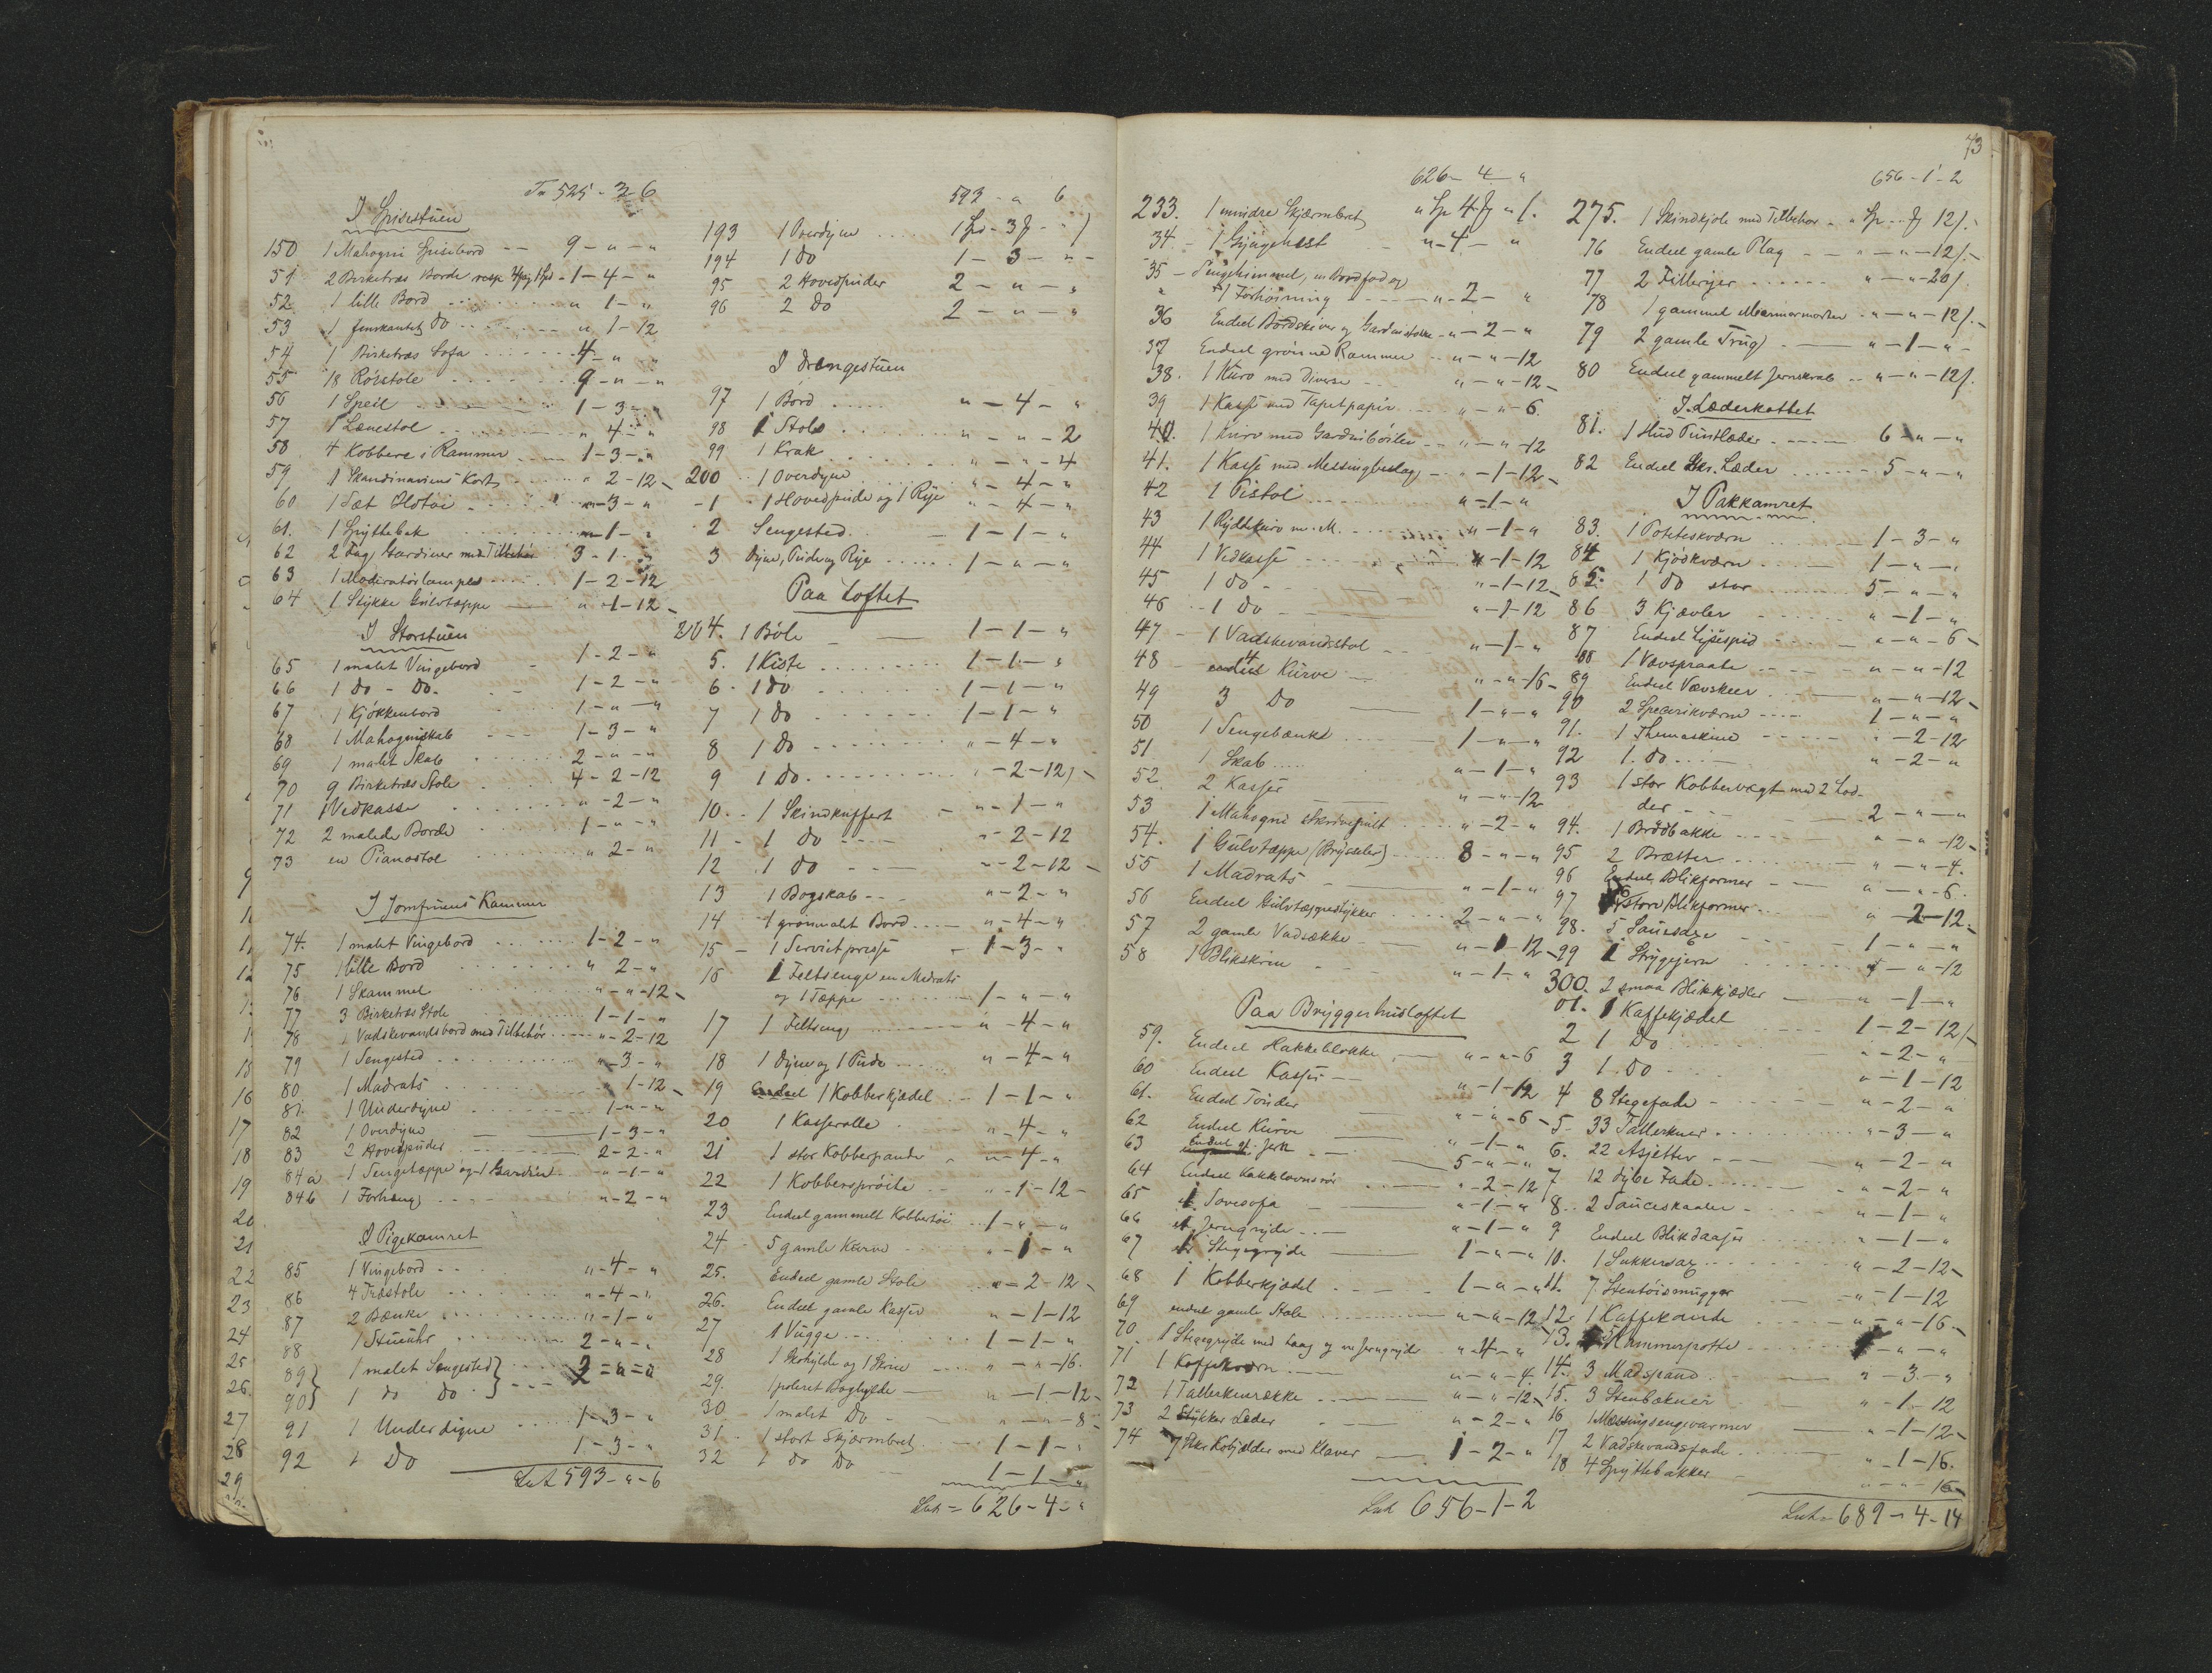 Tr 525 - 3 - 6
I Spisestuen
150 1 Mahogni Spisebord - - 9 - " - "
51 2 Birketræs Borde - 1 - 4 - "
52 1 lille Bord " 1 - "
53 1 femkantet do " 1 - 12
54 1 Birketræs Sofa 4 - " "
55 18 Rørstole 9 - " - "
56 1 Speil 1 - 3 - "
57 1 Lænestol " 4 - "
58 4 Kobbere i Rammer 1 - 3 - "
59 1 Skandinaviens Kort " 2 - 12
60 1 Sæt Ildtøi " - 3 - "
61. 1 Spyttebak " - 1 - "
62 2 Fag Gardiner med Tilbehør 3 - 1 - "
63 1 Moderatørlampe 1 - 2 - 12
64 1 Stykke Gulvtæppe " - 1 - 12
I Storstuen
65 1 malet Vingebord - 1 - 2 - "
66 1 do - do. 1 - 2 - "
67 1 Kjøkkenbord 1 - " - "
68 1 Mahogniskab 1 - 3 - "
69 1 malet Skab 2 - " - "
70 9 Birketræs Stole 4 - 2 - 12
71 1 Vedkasse " - 2 - "
72 2 malede Borde 1 - " - "
73 en Pianostol " 2 - "
I Jomfruens Kammer
74. 1 malet Vingebord 1 - 2 - "
75 1 lille Bord " 2 - "
76 1 Skammel " - " - 12
77 3 Birketræs Stole 1 - 1 - "
78 1 Vadskevandsbord med Tilbehør " - 2 - 12
79 1 Sengested " - 3 - "
80 1 Madrats 1 - 12
81. 1 Underdyne 1 - " - "
82 1 Overdyne 1 - 3 - "
83 2 Hovedpuder 2 - 2 - "
84 a 1 Sengetæppe og 1 Gardin " - 1 - "
84 b 1 Forhæng " - 2 - "
I Pigekamret
85 1 Vingebord " - 4 - "
86 4 Træstole " - 4 - "
87 2 Bænke " - 1 - "
88 1 Stueuhr 2 - " - "
89 } 1 malet Sengested } 2 = " = "
90 } 1 do do
91 1 Underdyne 1 - 3 - "
92 1 Do 1 - 3 - "
Lat 593 - " - 6
593 - " 6
193 1 Overdyne 1 Sp - 3 -
194 1 do 1 - 3 - " -
95 2 Hovedpuder 2 - " - "
96 2 Do 2 - " - "
I Drengestuen
97 1 Bord " - 4 - "
98 1 Stol " - " - 2
99 1 Krak " - " - 4
200 1 Overdyne " - 4 - "
- 1 1 Hovedpude og 1 Rye " - 4 - "
2 Sengested 1 - 1 - "
3 Dyne, Pude og Rye 1 - " - "
Paa Loftet
204. 1 Bøle 1 - 1 - "
5. 1 Kiste 1 - 1 - "
6. 1 do 1 - 1 - "
7 1 do 1 - 1 - "
8 1 do " - 4 - "
9 1 do " - 2 - 12
10. 1 Skindkuffert " - 1 - "
11 1 do " - 2 - 12
12 1 do " - 2 - 12
13 1 Bogskab " - 2 - "
14 1 grønmalet Bord " - 4 - "
15 1 Servietpresse 1 - 3 - "
16 1 Feltsenge en Madrats
og 1 Tæppe 1 - " - "
17 1 Feltseng " - 4 - "
18 1 Dyne og 1 Pude " - 4 - "
19 Endeel 1 Kobberkjedel 1 - 1 - "
20 1 Kasserolle " - 4 - "
21 1 stor Kobberpande " - 4 - "
22 1 Kobbersprøite " - 1 - 12
23 Endeel gammelt Kobbertøi 1 - " - "
24 5 gamle Kurve " - 1 - "
25. Endeel gamle Stole " - 2 - 12
26. Endeel gamle Kasser " - 1 - 12
27 1 Vugge 1 - 1 - "
28 1 Skohylde og 1 Skrin " - " - 16.
29. 1 poleret Boghylde " - 1 - 12
30 1 malet Do " - " - 8
31. 1 stort Skjermbret 1 - 1 - "
32 1 do Do 1 - 1 - "
Lat = 626 - 4 - "
626 - 4 - "
233. 1 mindre Skjærmbret " Sp 4 "
34. 1 Gyngehest " - 4 - "
35 Sengehimmel, en Bordfod og
1 Forhøining " - 2 - "
36 Endeel Bordskiver og Gardinstokke " - 2 - "
37 Endeel grønne Rammer " - " - 12
38. 1 Kurv med Diverse " - " - 12
39 1 Kasse med Tapetpapir " - " - 6.
40. 1 Kurv med Gardinbøiler " - " - 12
41. 1 Kasse med Messingbeslag " - 1 - 12
42 1 Pistol " - 1 - "
43 1 Rydekurv m. M. " - 1 - "
44 1 Vedkasse " - 1 - 12
45 1 do " - 1 - 12
46 1 do " - 1 - 12
47 1 Vadskevandsstol " - 1 - "
48 4 Kurve " - " - 16
49 3 Do 1 - " - "
50 1 Sengebænk 1 - " - "
51 1 Skab " - 1 - "
52. 2 Kasser " - " - 12
53 1 Mahogni Skrivepult " - 2 - "
54. 1 Gulvtæppe (Brysseler) 8 - " - "
55 1 Madrats " - 1 - "
56 Endeel Gulvtæppestykker 2 - " - "
57 2 gamle Vadsække " - 1 - 12
58 1 Blikskrin " - 1 - "
Paa Bryggerhusloftet
59. Endeel Hakkeblokke " - " - 6
60 Endeel Kasser " - 1 - 12
61. Endeel Tønder " - " - 6
62 Endeel Kurve " - 1 - "
63 Endeel gl. Jern 5 - " - "
64 Endeel Kakkelovnsrør " - 2 - 12
65 1 Sovesofa " - 1 - "
66 et Jerngryde " - 1 - "
67 1 Stegegryde 1 - " - "
68 1 Kobberkjedel 1 - " - "
69 endeel gamle Stole " - " - 12
70. 1 Stegegryde med Laag og en Jerngryde " - 4 - "
71 1 Kaffekværn " - " - 4
72 1 Tallerkenrække " - " - 12
73 2 Stykker Læder " - 2 - "
74 7 Stkr Kobjælder med Klaver 1 - 2 - "
Lat 656 - 1 - 2
73
656 - 1 - 2
275. 1 Skindkjole med Tilbehør " Sp 12
76 Endeel gamle Plag " - " - 12
77 2 Filleryer " - " - 20
78 1 gammel Marmormorter " - " - 12
79 2 gamle Trug " - 1 - "
80 Endeel gammelt Jernskrab " - " - 12
I Læderkottet
81. 1 Hud Pundlæder 6 - " - "
82 Endeel Skr. Læder 5 - " - "
I Pakkamret
83. 1 Poteteskværn 1 - 3 - "
84 1 Kjødkværn 1 - " - "
85. 1 do stor 5 - " - "
86 3 Kjævler " - 1 - "
87 Endeel Lysespid " - " - 6
88 1 Vævspraate " - " - 12
89 Endeel Vævskeer " - " - 12
90 2 Specerikværne 1 - " - "
91. 1 Themaskine " - 2 - 12
92 1. do " - 2 - "
93 1 stor Kobbervægt med 2 Lod-
der 2 - " - "
94. 1 Brødbakke " - " - 12
95 2 Brætter " - " - 4.
96 Endeel Blikformer " - " - 6.
97 6 store Blikformer " - 2 - 12
98. 5 Saucsaxe 1 - " - "
99 1 Strygejern " - " - 12
300. 2 smaa Blikkjedler " - 1 - "
01. 1 Kaffekjedel 1 - 2 - 12
2 1 Do " - 2 - "
3 1. Do " - 1 - 12
4 8 Stegefade " - 2 - "
5 33 Tallerkner " - 3 - "
6. 22 Asjetter " - 2 - "
7 12 dybe Fade " - 2 - "
8. 2 Sauceskaaler " - 1 - "
9 Endeel Blikdaaser " - 1 - "
10. 1 Sukkersax " - 2 - 12
11. 7 Stentøismugger " - 1 - 12
12. 1 Kaffekande " - " - 16
13. Kammerpotte " - "
14. 3 Madspand " - 3 - "
15. 3 Stenbakner " - 1 - 12
16 1 Messingsengevarmer " - 1 - 12
17 2 Vadskevandsfade " - 1 - 16.
18 4 Spyttebakker " - " - 16
Lat 689 - 4 - 14